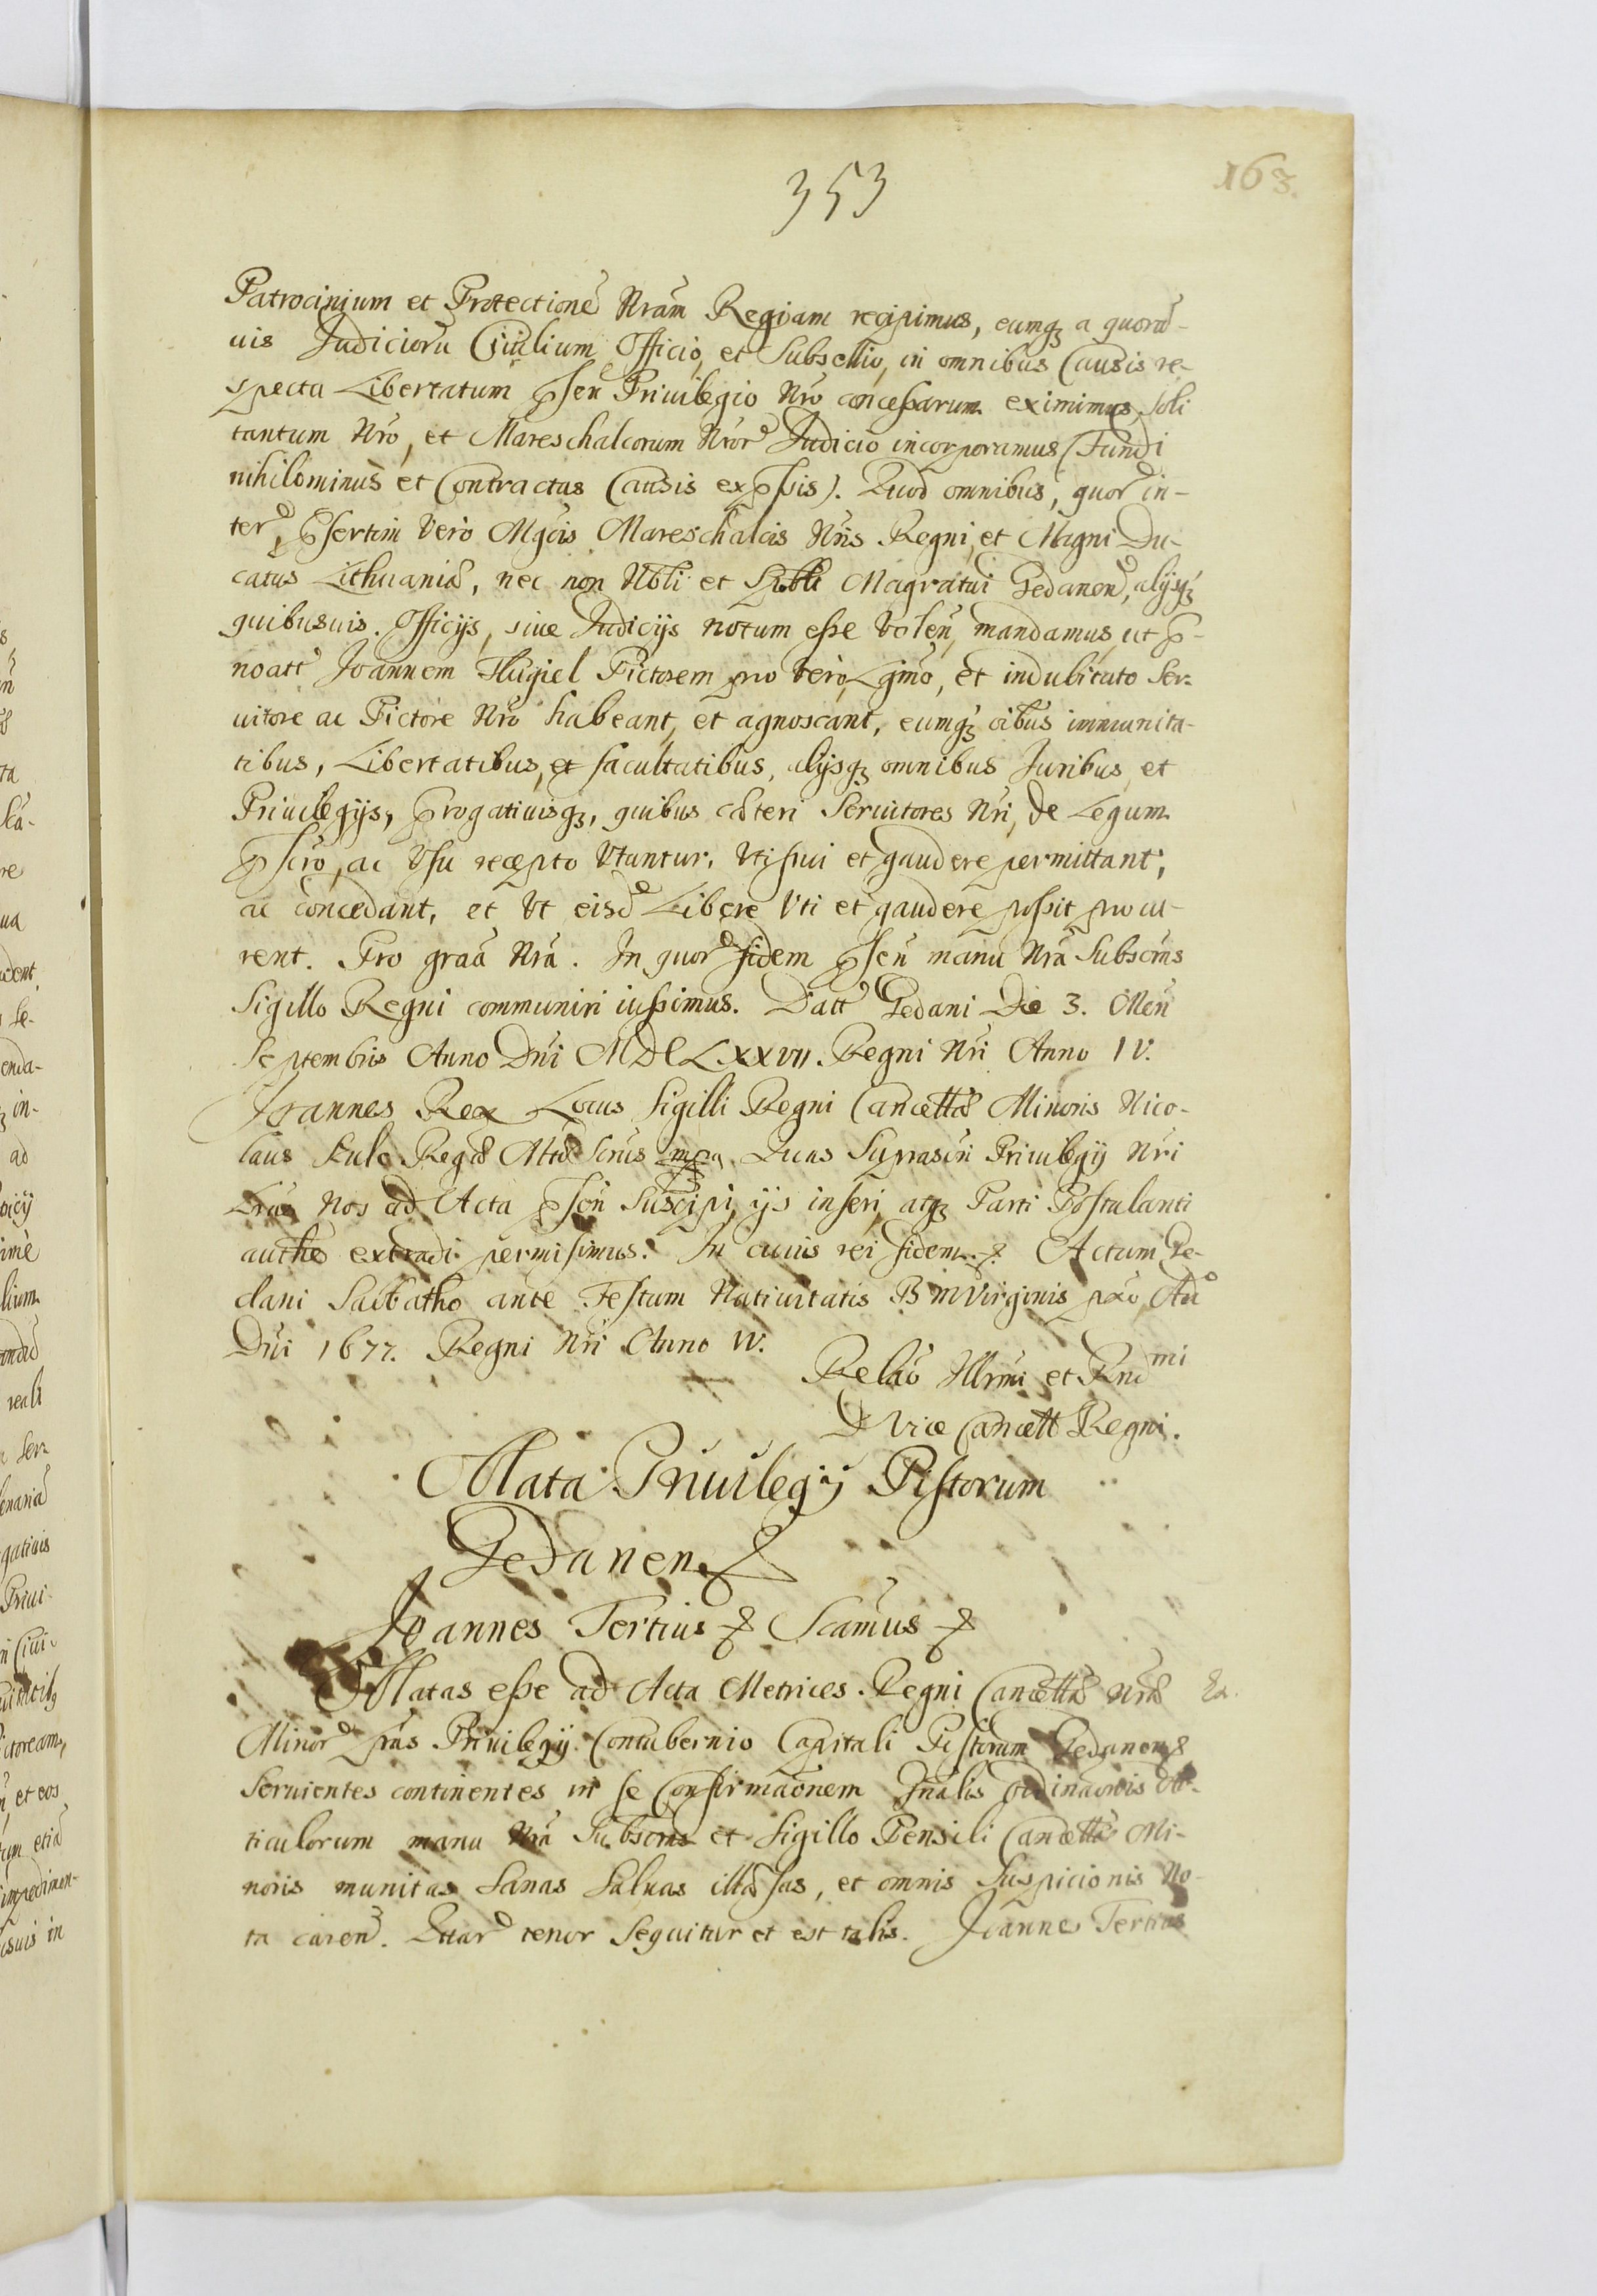 353
163.
Patrocinium et Protectionē Nrām Regiam recipimus, eumqꝫ a quorū-
uis Judiciorū Ciuilium Officio, et Subsellio, in omnibus Causis re-
specta Libertatum p̄sen Priuilegio Nrō conceſsarum eximimus, soli
tantum Nrō, et Mareschalcorum Nror Judicio incorporamus (Fundi
nihilominus et Contractus Causis exp̄ſsis). Quod omnibus, quor in-
ter, p̄sertim vero Mgcis Mareschalcis Nris Regni, et Magni Du-
catus Lithuaniæ, nec non Nbli et Spbli Magratui Gedanen, alijsqꝫ
quibusuis Officijs, siue Judicijs notum eſse volen, mandamus, ut p̄-
noatt Joannem Flugiel Pictorem pro vero, Lgmo, et indubitato Ser-
uitore ac Pictore Nrō habeant, et agnoscant, eumqꝫ oibus immunita-
tibus, Libertatibus, et facultatibus, alijsqꝫ omnibus Juribus, et
Priuilegijs, p̄rogatiuisqꝫ, quibus cæteri Seruitores Nri, de Legum
p̄scro, ac Vsu recepto Vtantur, Vti frui et gaudere permittant,
ac concedant, et Vt eisd Libere Vti et gaudere poſsit procu-
rent. Pro graā Nrā. In quor fidem p̄sen manu Nrā Subscrās
Sigillo Regni communiri iuſsimus. Datt Gedani Die 3. Men
Septembris Anno Dni MDCLXXVII. Regni Nri Anno IV.
Joannes Rex Locus Sigilli Regni Cancettæ Minoris Nico-
laus Kulc Regæ Mttis Scrius mpa. Quas Suprascri Priuilegij Nri
Lrās Nos ad Acta p̄sen Suscipi, ijs inseri, atqꝫ Parti Postulanti
authe extradi permisimus. In cuius rei fidem. Actum Ge-
dani Sabbatho ante Festum Natiuitatis B M Virginis pxo, An
Dni 1677. Regni Nri Anno IV.
Relaō Illrmi et Rndmi
D Vice Cancett Regni.
Oblata Priuilegij Pistorum
Gedanen
Joannes Tertius Scamus
Oblatas eſse ad Acta Metrices Regni Cancettæ Nræ
Minor Lrās Priuilegij Contubernio Capitali Pistorum Gedanen
Seruientes continentes in se Confirmaōnem Gnalis Ordinaōnis Ar-
ticulorum manu Nrā Subscrās et Sigillo Pensili Cancettæ Mi-
noris munitas Sanas Saluas illæsas, et omnis Suspicionis No-
ta caren. Quar tenor Sequitur et est talis. Joannes Tertius